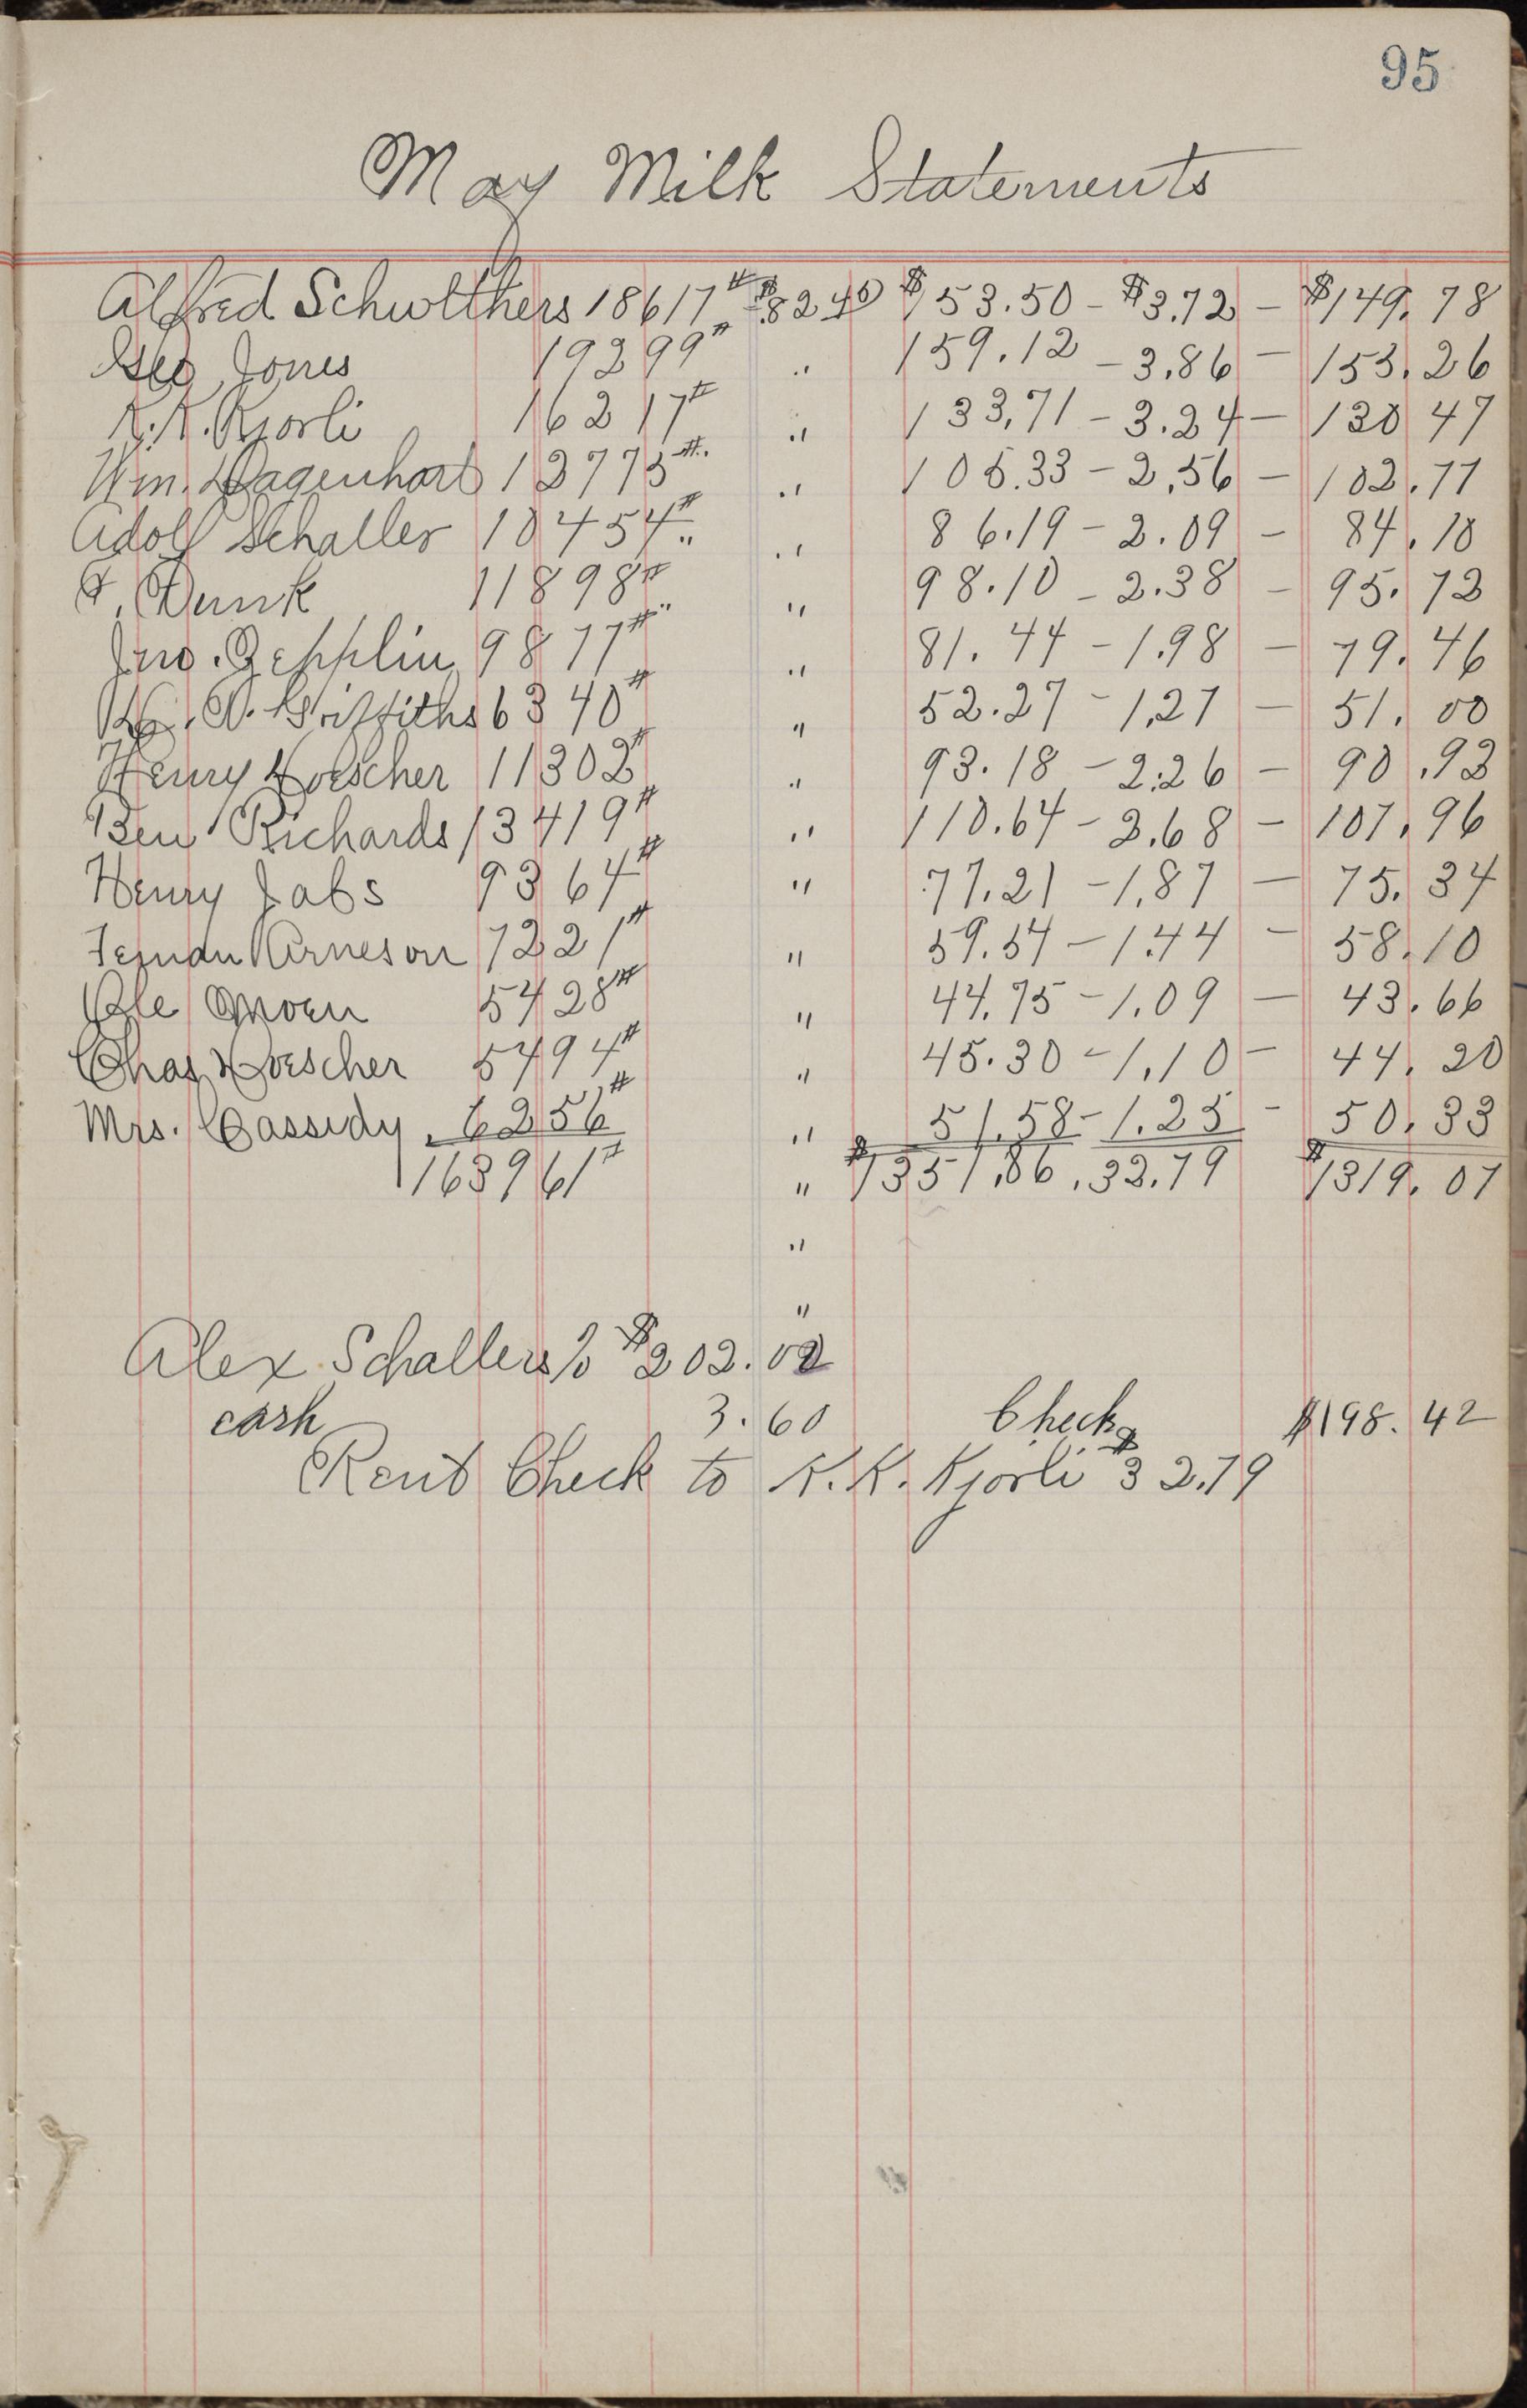 95
May Milk Statements
Alfred Schwlthers 18617# $.8245 $153.50 - $3.72 - $149.78
Geo Jones 19299# " 159.12 - 3.86 - 153.26
K.K. Kjorli 16217# " 133.71 - 3.24 - 130 47
Wm. Dagenhart 12775# " 105.33 - 2.56 - 102.77
Adolf Schaller 10454# " 86.19 - 2.09 - 84.10
F. Dunk 11898# " 98.10 - 2.38 - 95.72
Jno. Zepplin 9877# " 81.44 - 1.98 - 79.46
D. Griffiths 6340# " 52.27 - 1.27 - 51.00
Henry Loescher 11302# " 93.18 - 2.26 - 90.92
Ben Richards 13419# " 110.64 - 2.68 - 107.96
Henry Jabs 9364# " 77.21 - 1.87 - 75.34
Arneson 7221# " 59.54 - 1.44 - 58.10
Ole Moen 5428# " 44.75 - 1.09 - 43.66
Chas Loescher 5494# " 45.30 - 1.10 - 44.20
Mrs. Cassidy 6256# " 51.58 - 1.25 - 50.33
163961# " $1351.86 . 32.79 $1319.07
"
"
Alex Schallers % $202.02
cash 3.60 Check $198.42
Rent Check to K.K. Kjorli $32.79